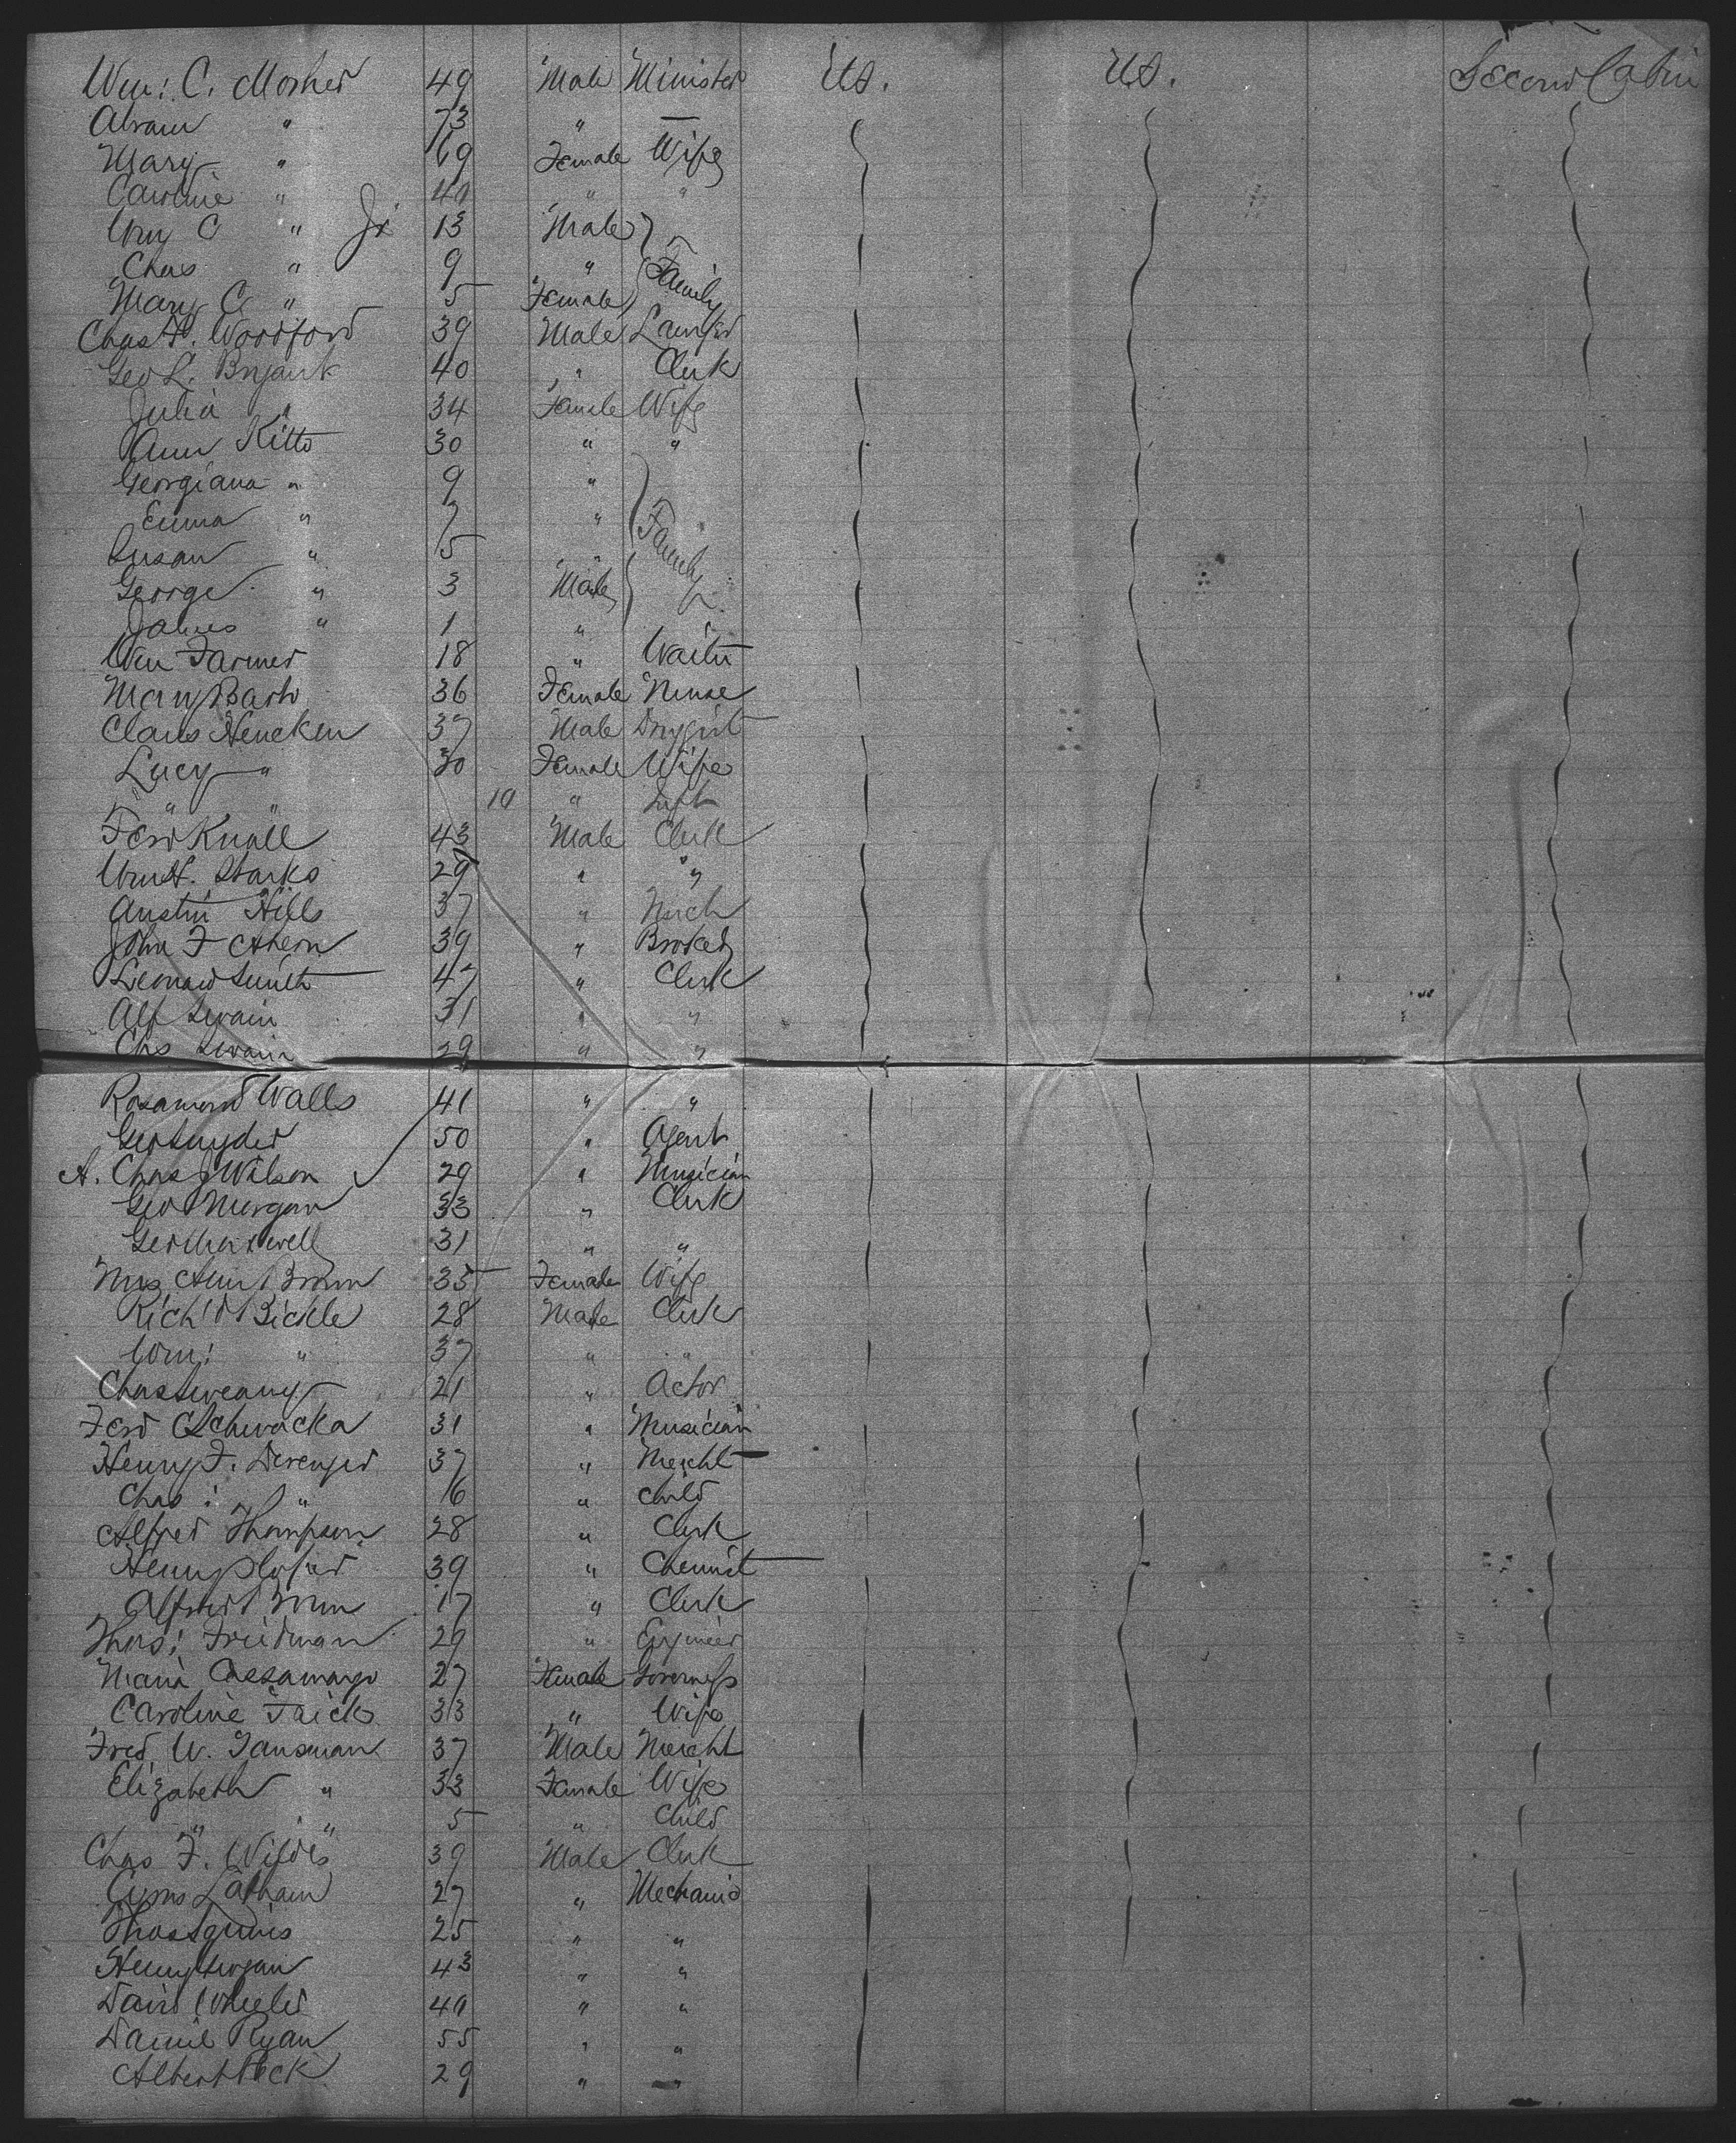 Wm: C. Mosher 49 Male Minister U.S. U.S. Second Cabin
Abram " 73 " —
Mary " 69 Female Wife
Caroline " 40 " "
Wm C " Jr 13 Male
Chas " 9 " Family
Mary C " 5 Female
Chas H. Woodford 39 Male Lawyer
Geo L. Bryant 40 " Clerk
Julia " 34 Female Wife
Ann Kitto 30 " "
Georgiana " 9 "
Emma " 7 " Family
Susan " 5 "
George " 3 Male
James " 1 "
Wm Farmer 18 " Waiter
Mary 36 Female Nurse
Claus Hencken 37 Male Drygist
Lucy " 30 Female Wife
" " " 10 " Inft
Ferd Knall 43 Male Clerk
Wm H. Starks 29 " "
Austin Hills 37 " Merch
John F Ahern 39 " Broker
Leonard Smith 47 " Clerk
Alf Swain 31 " "
Chs Swain 29 " "
Rosamond Walls 41 " "
Geo Snyder 50 " Agent
A. Chas J Wilson 29 " Musician
Geo Morgan 33 " Clerk
Geo Maxwell 31 " "
Mrs Ann Brown 35 Female Wife
Rich'd Bickle 28 Male Clerk
Wm: " 37 " "
Chas Sweany 21 " Actor
Ferd Schwacka 31 " Musician
Henry F. 37 " Mercht
Chas: " 6 " Child
Alfred Thompson 28 " Clerk
Henry 39 " Chemist
Alfred Brown 17 " Clerk
Thos: Friedman 29 " Engineer
Maria 27 Female Governess
Caroline Faick 33 " Wife
Fred W. Tansman 37 Male Mercht
Elizabeth " 33 Female Wife
" " 5 " Child
Chas F. Wildes 39 Male Clerk
Cyrus Latham 27 " Mechanic
Thos Squires 25 " "
Henry 43 " "
David Wheeler 40 " "
Daniel Ryan 55 " "
Albert Peck 29 " "